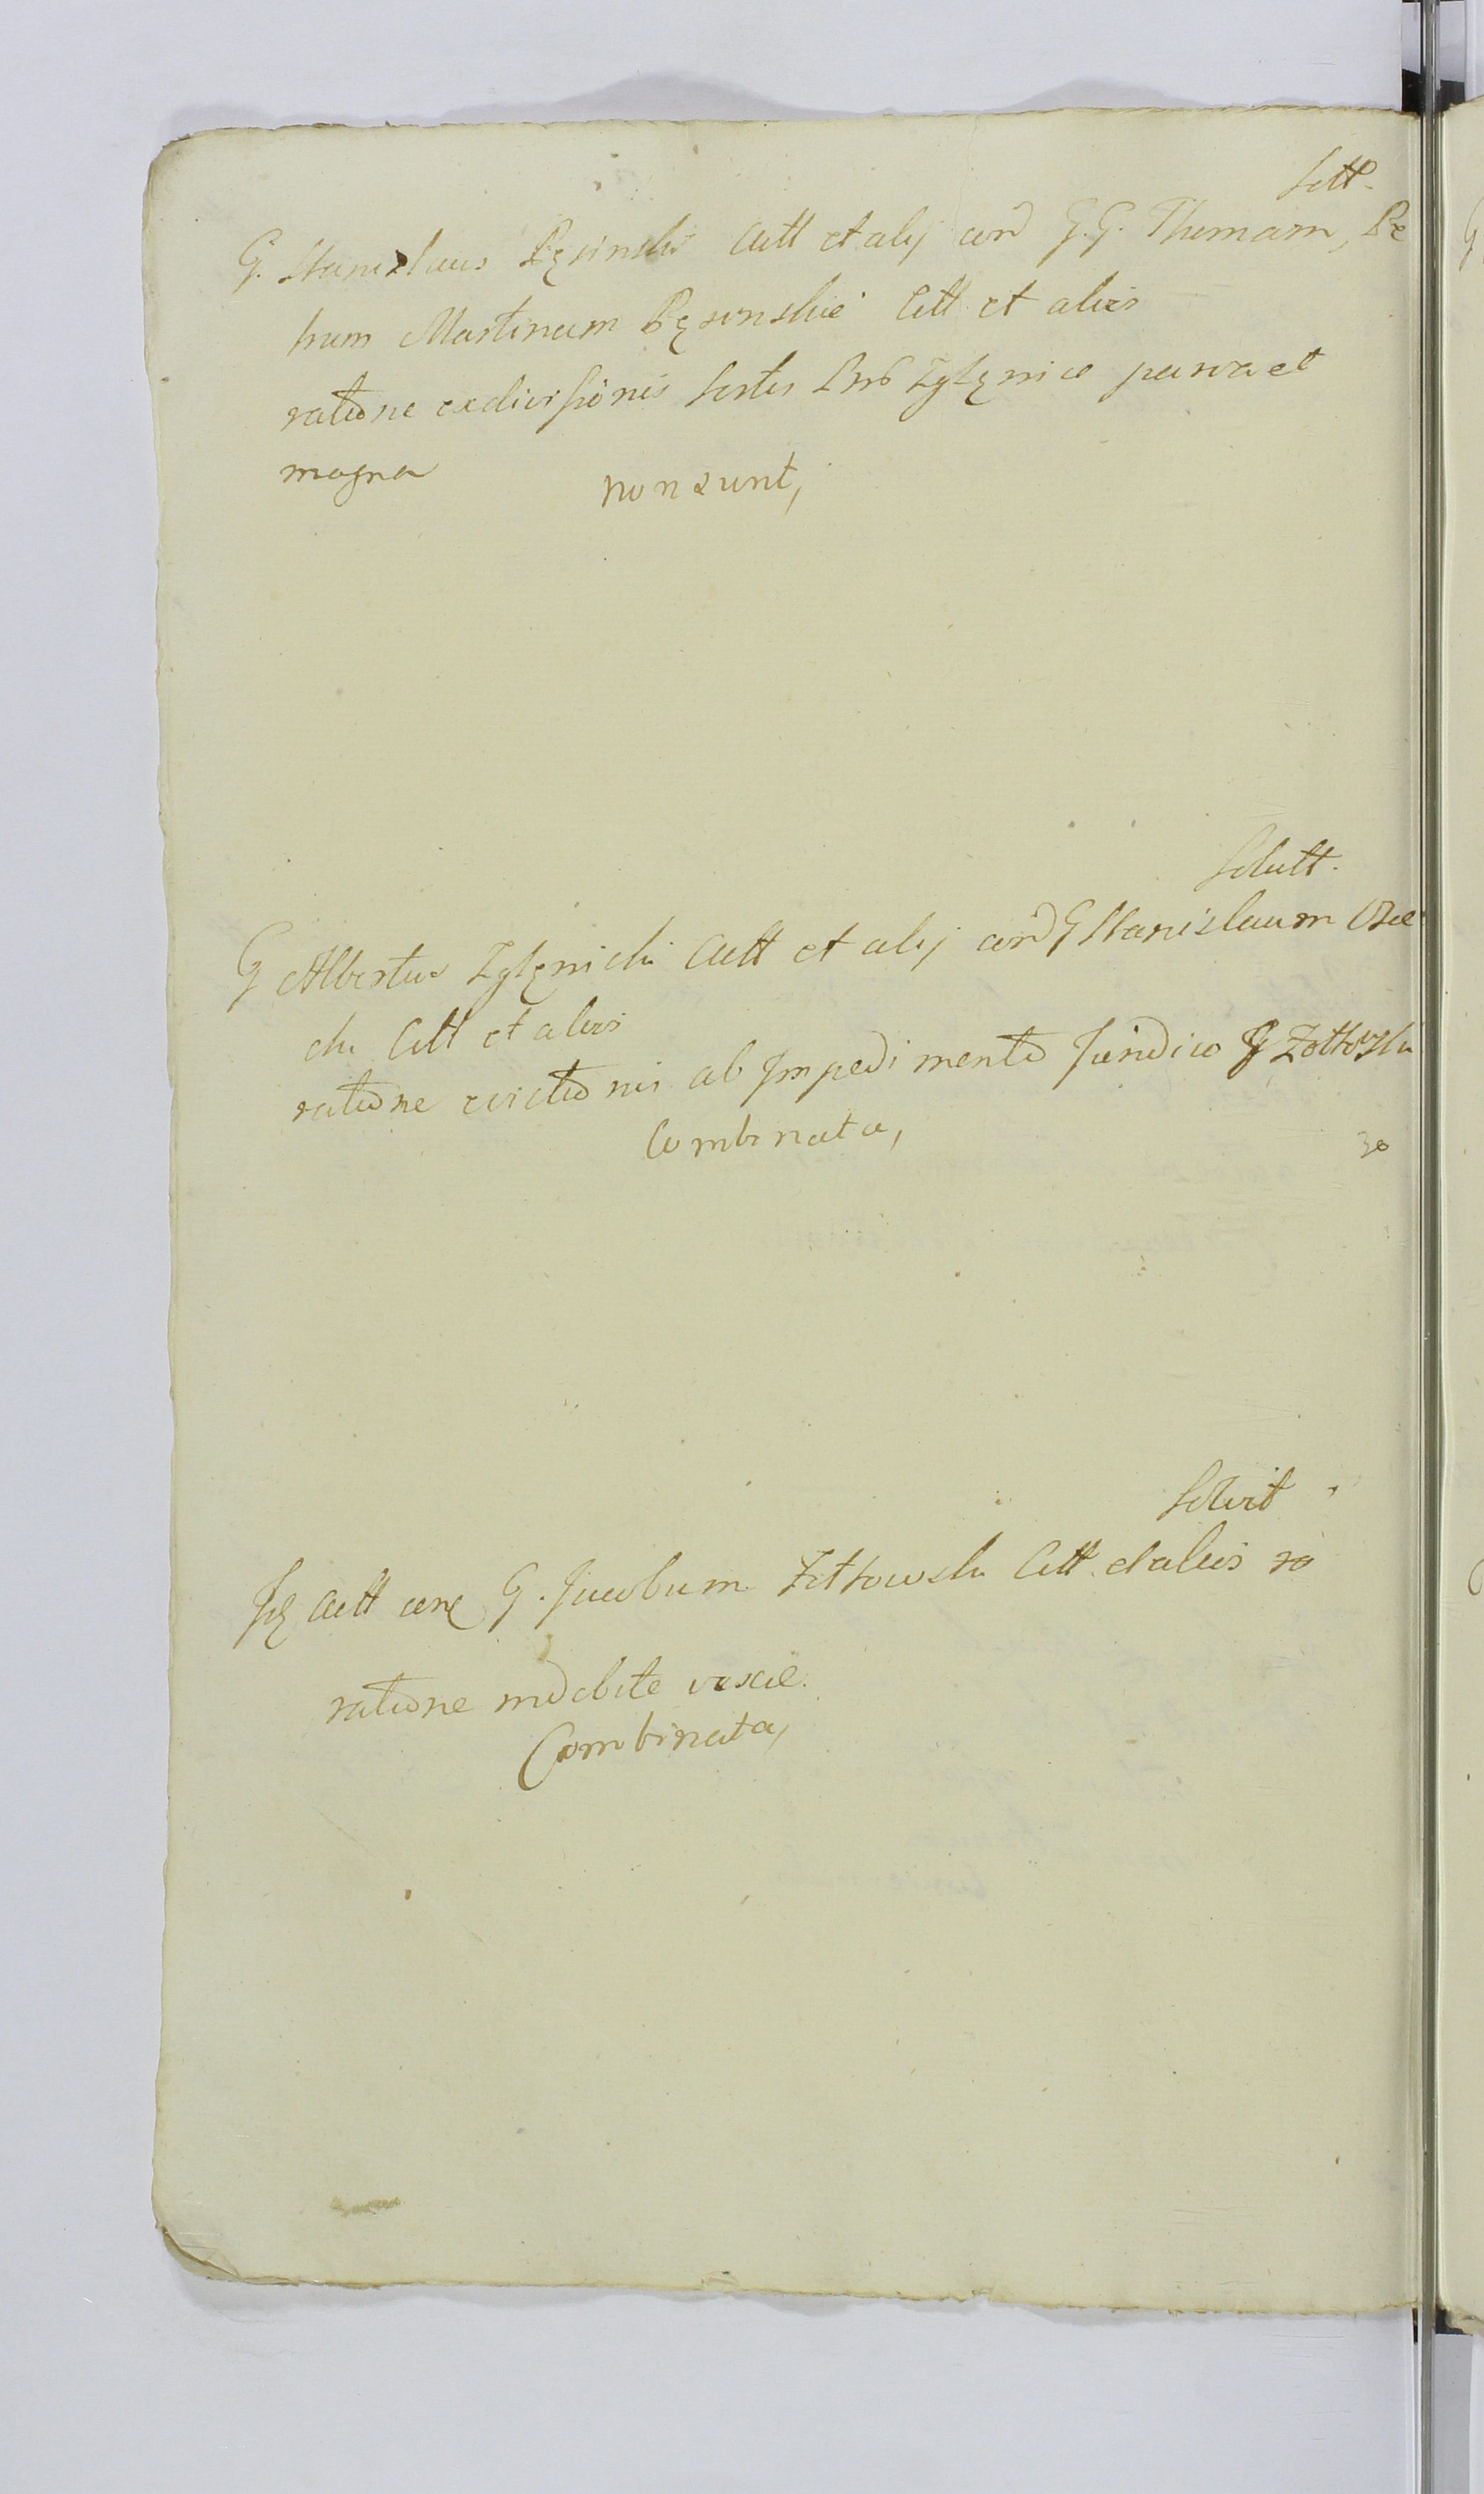 Sott.
G. Stanislaus Bęsinski Actt et alij con G. G. Thomam, Pe
trum Martinum Bęsinskie Citt et alios
ratione exdivisionis sortis Zglęnice parva et
magna
non sunt,
Solutt.
G Albertus Zglęnicki Actt et alij con G Stanislaum
cki Citt et alios
ratione evictionis ab Impedimento Juridico G Zottowski
Combinata,
30
Solvit
Id Actt con G. Jacobum Zottowski Citt et alios ra
ratione indebite vexae.
Combinata,